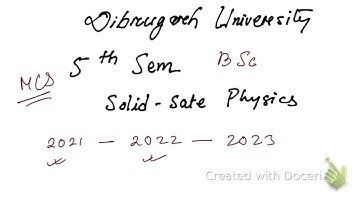 Dibrugarh University
5th Sem BSc
MCS
Solid-Sate Physics
2021 - 2022 - 2023
Created with Doceri